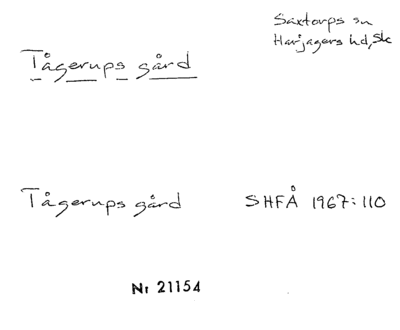 Saxtorps sn
Harjagers hd, Sk
Tågerups gård
Tågerups gård SHFÅ 1967:110
Nr 21154